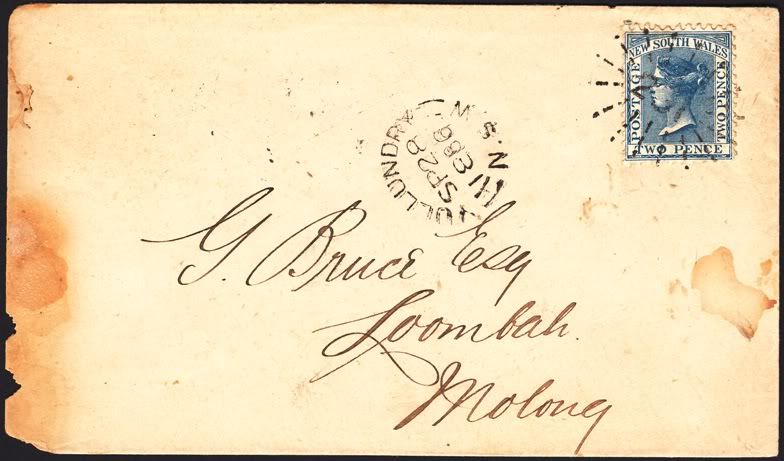 NEW SOUTH WALES
POSTAGE
TWO PENCE
TWO PENCE
YULLUNDRY
SP 28
N.S.W
G. Bruce Esq
Loombah.
Molong